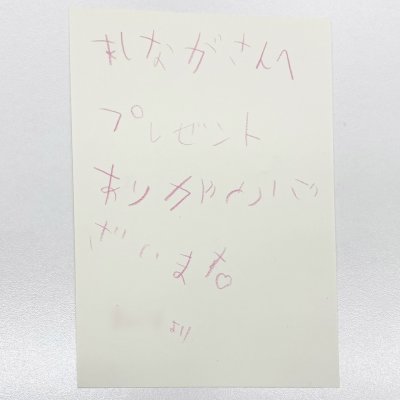 れながさんへ
プレゼント
ありがとうご
ざいます。
より